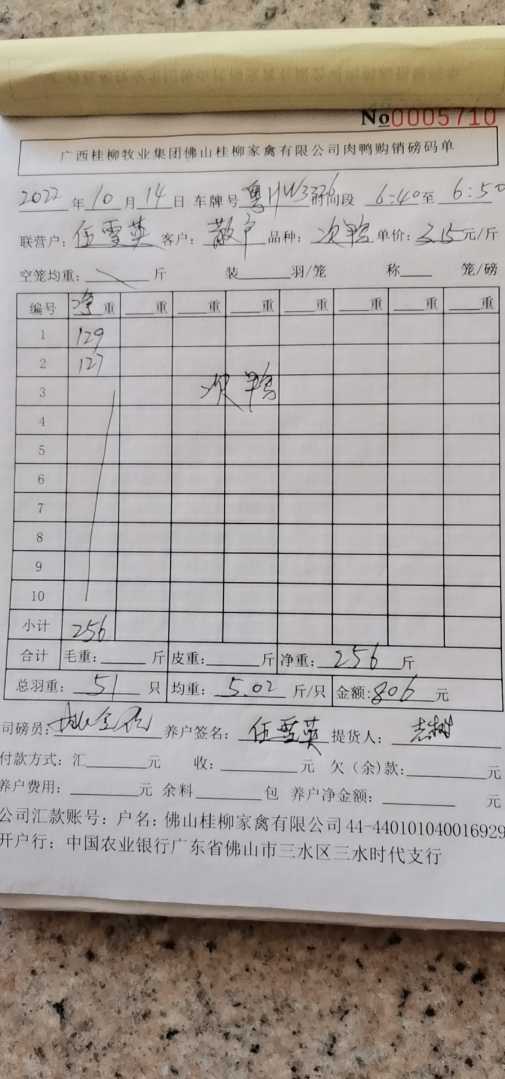 №0005710
广西桂柳牧业集团佛山桂柳家禽有限公司肉鸭购销磅码单
2022年10月14日 车牌号 粤HW3326 时间段 6:40至6:50
联营户：任雪英 客户：散户 品种：次鸭 单价：3.15元/斤
空笼均重：____斤 装____羽/笼 称____笼/磅
编号 净重 __重 __重 __重 __重 __重 __重 __重
1 129
2 127
3 次鸭
4
5
6
7
8
9
10
小计 256
合计 毛重：____斤 皮重：____斤 净重：256斤
总羽重：51只 均重：5.02斤/只 金额：806元
司磅员： 养户签名：任雪英 提货人：
付款方式：汇____元 收：____元 欠（余）款：____元
养户费用：____元 余料____包 养户净金额：____元
公司汇款账号：户名：佛山桂柳家禽有限公司 44-440101040016929
开户行：中国农业银行广东省佛山市三水区三水时代支行